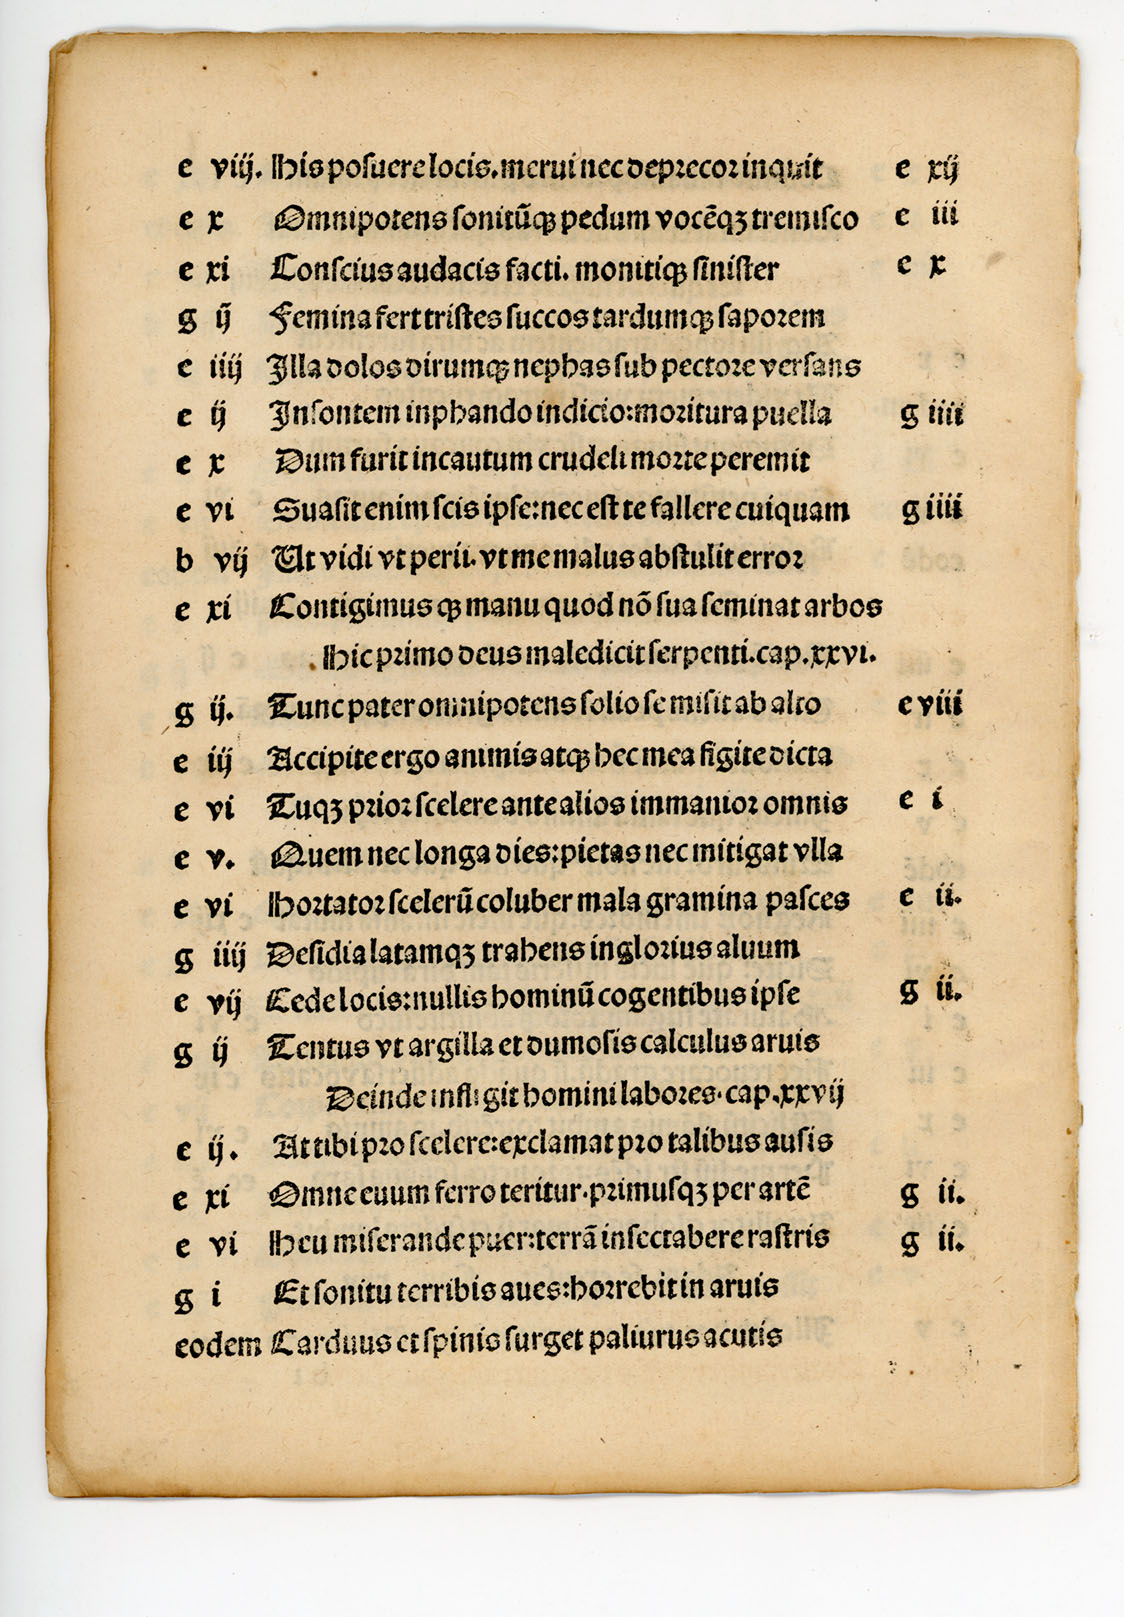 e viij. His posuere locis. merui nec deprecor inquit e xij
e x Omnipotens sonitūqꝫ pedum vocēqꝫ tremisco e iii
e xi Conscius audacis facti. monitiqꝫ sinister e x
g ij Femina fert tristes succos tardumqꝫ saporem
e iiij Illa dolos dirumqꝫ nephas sub pectore versans
e ij Insontem inphando indicio: moritura puella g iiii
e x Dum furit incautum crudeli morte peremit
e vi Suasit enim scis ipse: nec est te fallere cuiquam g iiii
b vij Ut vidi vt perii. vt me malus abstulit error
e xi Contigimusqꝫ manu quod nō sua seminat arbos
Hic primo deus maledicit serpenti. cap. xxvi.
g ij. Tunc pater omnipotens solio se misit ab alto e viii
e iij Accipite ergo animis atqꝫ hec mea figite dicta
e vi Tuqꝫ prior scelere ante alios immanior omnis e i
e v. Quem nec longa dies: pietas nec mitigat vlla
e vi Hortator scelerū coluber mala gramina pasces e ii.
g iiij Desidia latamqꝫ trahens inglorius aluum
e vij Cede locis: nullis hominū cogentibus ipse g ii.
g ij Tentus vt argilla et dumosis calculus aruis
Deinde infligit homini labores. cap. xxvij
e ij. At tibi pro scelere: exclamat pro talibus ausis
e xi Omne euum ferro teritur. primusqꝫ per artē g ii.
e vi Heu miserande puer: terrā insectabere rastris g ii.
g i Et sonitu terribis aues: horrebit in aruis
eodem Carduus et spinis surget paliurus acutis